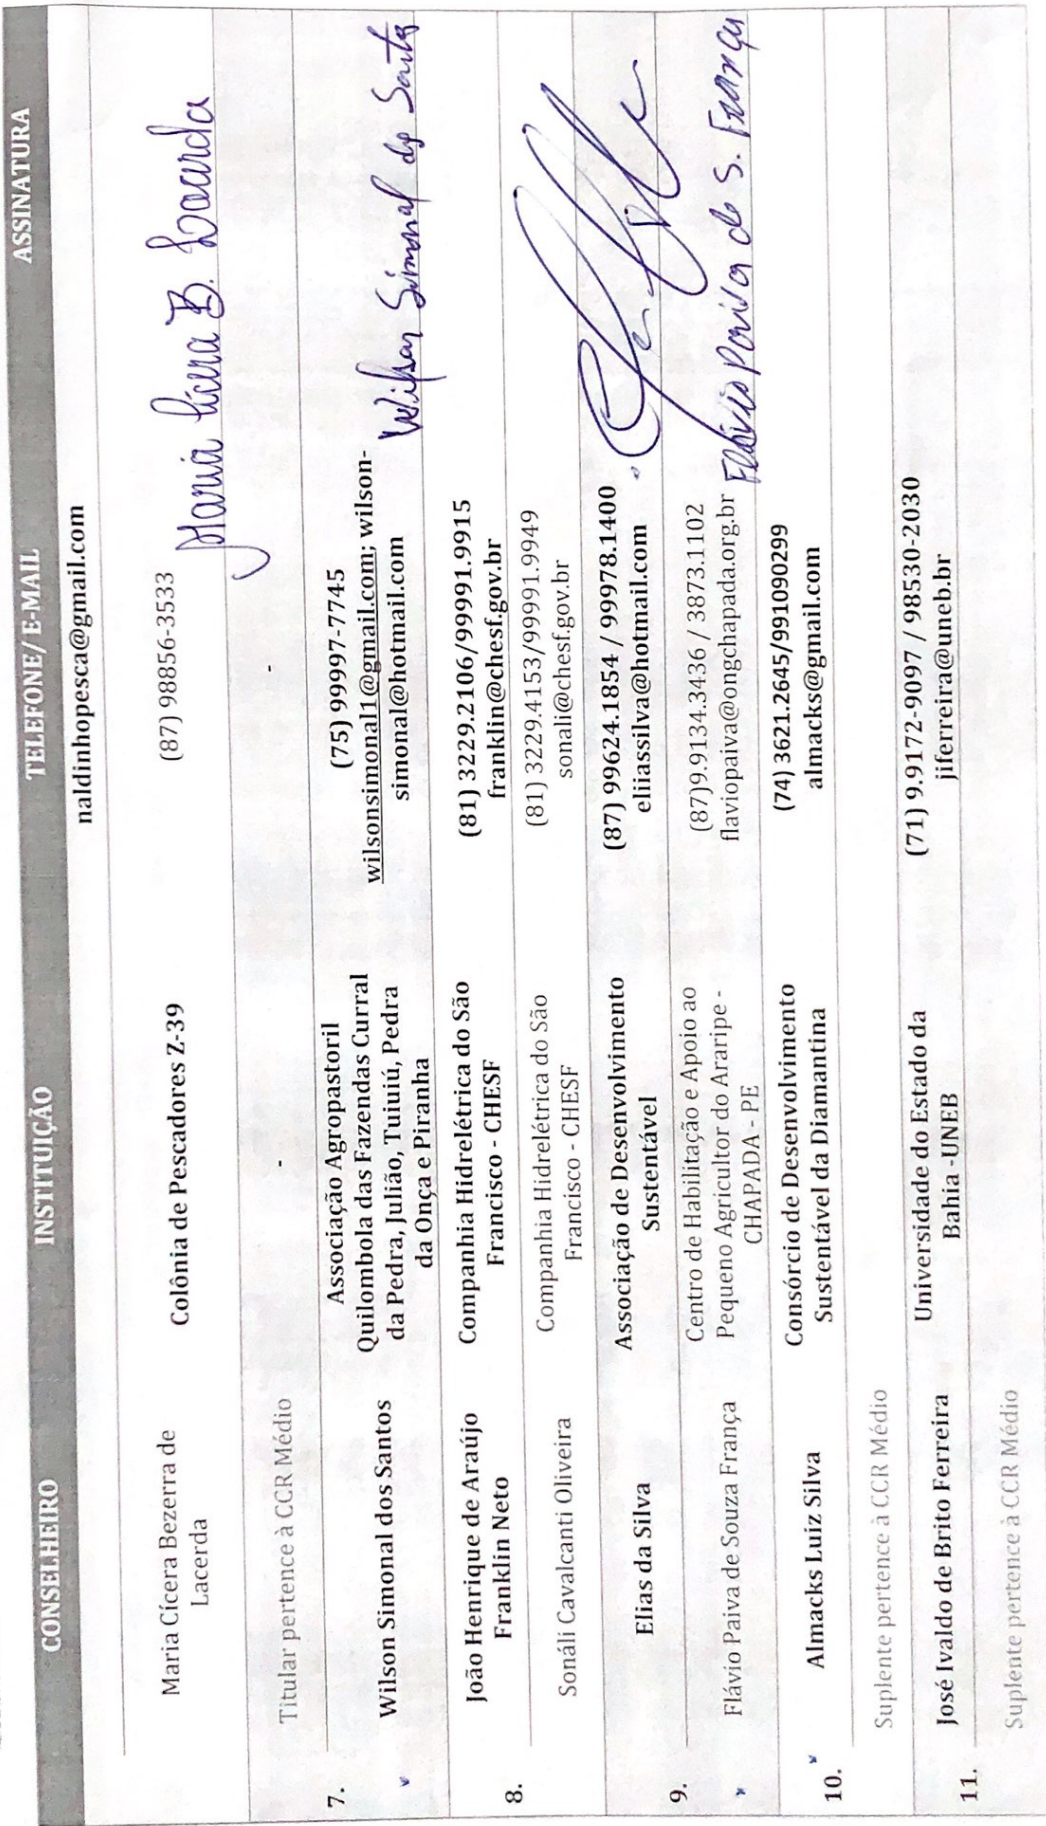 CONSELHEIRO INSTITUIÇÃO TELEFONE/ E-MAIL ASSINATURA
naldinhopesca@gmail.com
Maria Cícera Bezerra de
Lacerda
Colônia de Pescadores Z-39
(87) 98856-3533
Maria Cícera B. Lacerda
Titular pertence à CCR Médio
-
-
7.
Wilson Simonal dos Santos
Associação Agropastoril
Quilombola das Fazendas Curral
da Pedra, Julião, Tuiuiú, Pedra
da Onça e Piranha
(75) 99997-7745
wilsonsimonal1@gmail.com; wilson-
simonal@hotmail.com
Wilson Simonal dos Santos
8.
João Henrique de Araújo
Franklin Neto
Companhia Hidrelétrica do São
Francisco - CHESF
(81) 3229.2106/99991.9915
franklin@chesf.gov.br
Sonáli Cavalcanti Oliveira
Companhia Hidrelétrica do São
Francisco - CHESF
(81) 3229.4153/99991.9949
sonali@chesf.gov.br
9.
Elias da Silva
Associação de Desenvolvimento
Sustentável
(87) 99624.1854 / 99978.1400
eliassilva@hotmail.com
Flávio Paiva de Souza França
Centro de Habilitação e Apoio ao
Pequeno Agricultor do Araripe -
CHAPADA - PE
(87)9.9134.3436 / 3873.1102
flaviopaiva@ongchapada.org.br
Flávio Paiva de S. França
10.
Almacks Luiz Silva
Consórcio de Desenvolvimento
Sustentável da Diamantina
(74) 3621.2645/991090299
almacks@gmail.com
Suplente pertence à CCR Médio
11.
José Ivaldo de Brito Ferreira
Universidade do Estado da
Bahia -UNEB
(71) 9.9172-9097 / 98530-2030
jiferreira@uneb.br
Suplente pertence à CCR Médio